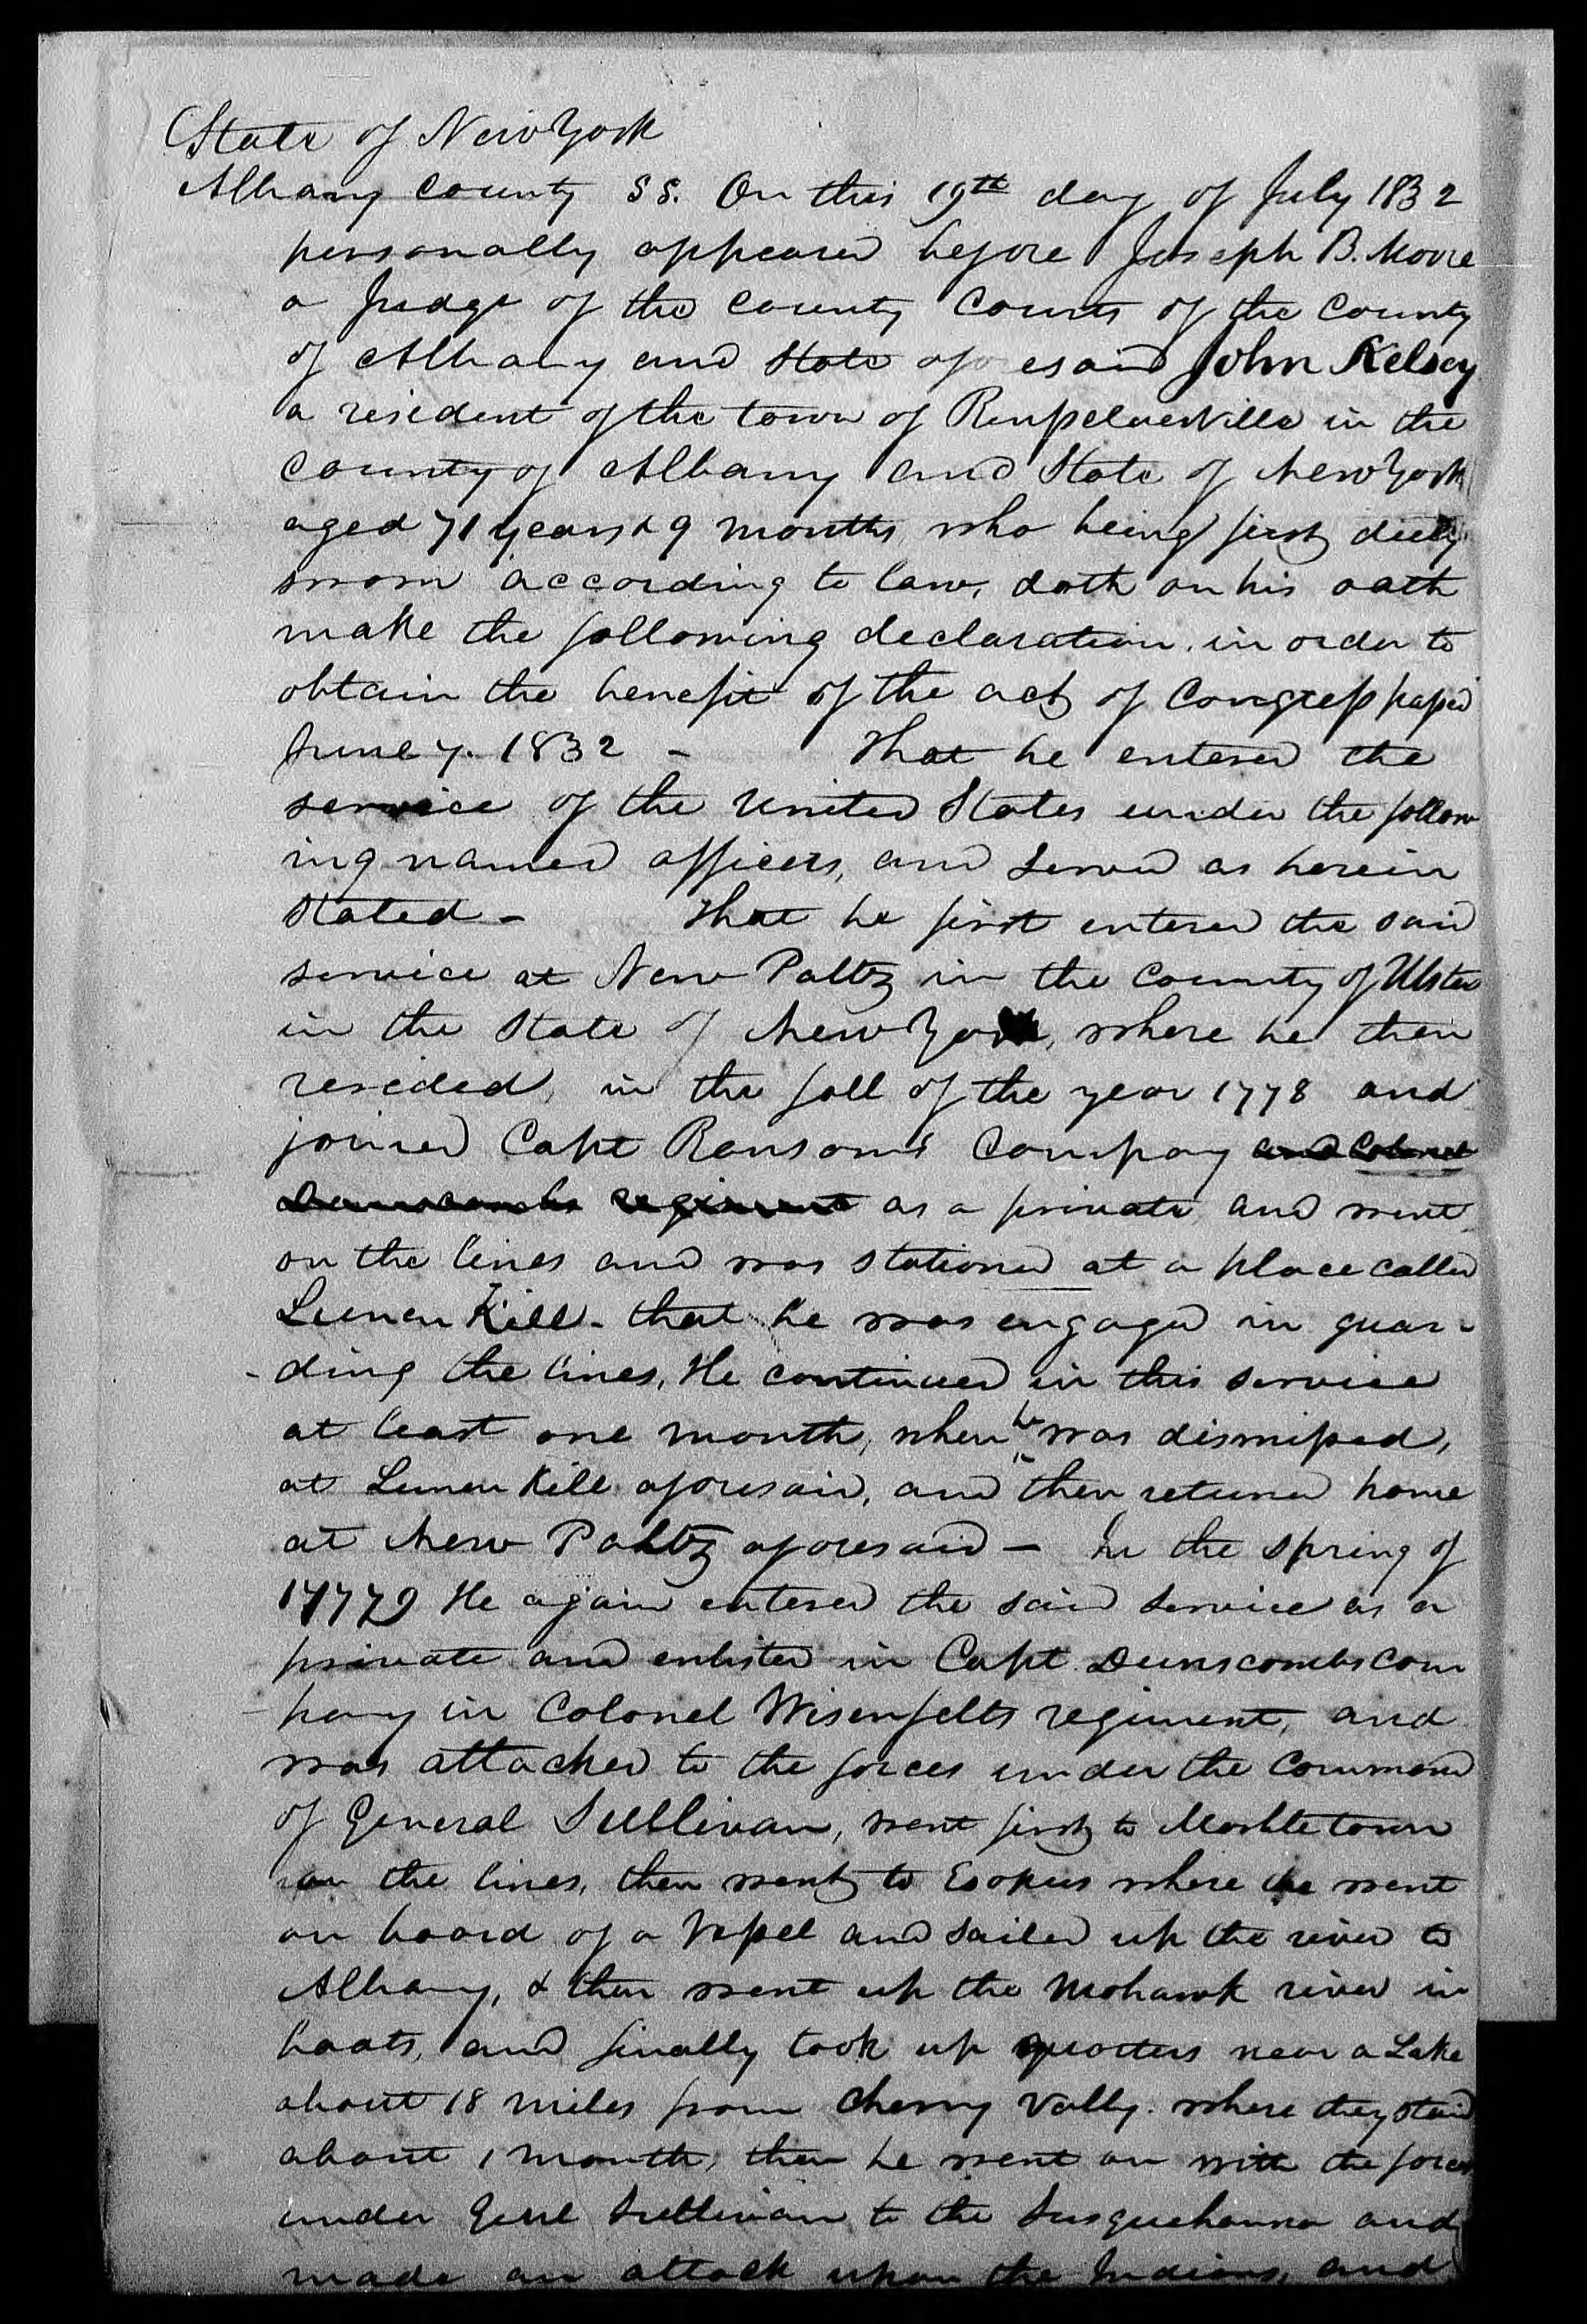 State of New York
Albany County SS. On this 19th day of July 1832
personally appeared before Joseph B. Moore
a Judge of the County Courts of the County
of Albany and State aforesaid John Kelsey
a resident of the town of Renpelaerville in the
County of Albany and State of New York
aged 71 years & 9 months, who being first duly
sworn according to law, doth on his oath
make the following declaration, in order to
obtain the benefit of the act of Congress passed
June 7. 1832 - That he entered the
service of the United States under the follow
ing named officers, and served as herein
stated - That he first entered the said
service at New Paltz in the County of Ulster
in the State of New York, where he then
resided, in the fall of the year 1778 and
joined Capt Ransom's Company and Colonel
Dunscombs regiment as a private and went
on the lines and was stationed at a place called
Lunen Kill - that he was engaged in guar-
-ding the lines, He continued in this service
at least one month, when he was dismissed,
at Lunen Kill aforesaid, and then returned home
at New Paltz aforesaid - In the spring of
17779 He again entered the said service as a
private and enlisted in Capt Dunscombs com
pany in Colonel Wisenfelts regiment, and
was attached to the forces under the command
of General Sullivan, went first to Marbletown
on the lines, then went to Esopus where he went
on board of a Vessel and sailed up the river to
Albany, & then went up the Mohawk river in
boats, and finally took up quarters near a Lake
about 18 miles from Cherry Vally. where they staid
about 1 month, then he went on with the forces
under Genl Sullivan to the Susquehanna and
made an attack upon the Indians, and